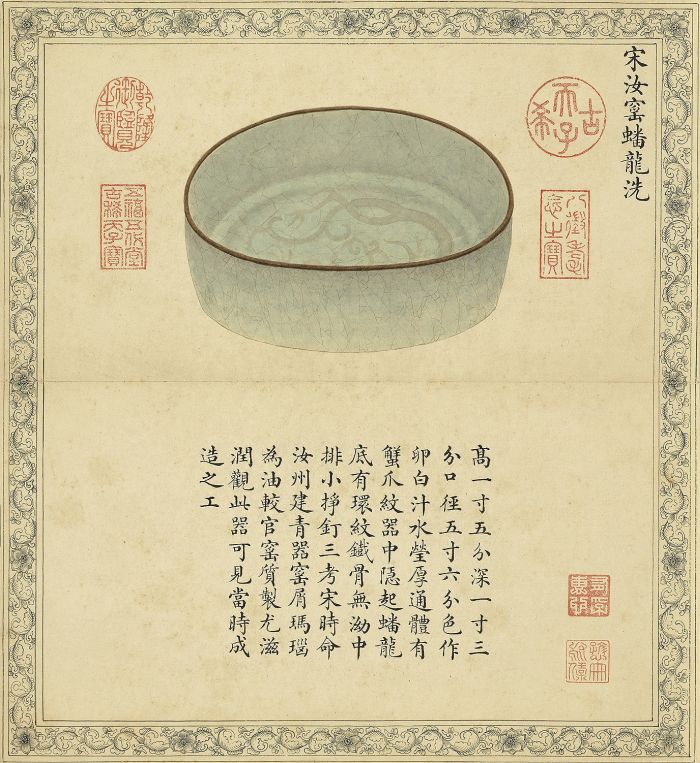 宋汝窰蟠龍洗
古稀天子
八徵耄念之寶
乾隆御覽之寶
五福五代堂古稀天子寶
髙一寸五分深一寸三
分口徑五寸六分色作
卵白汁水瑩厚通體有
蟹爪紋器中隱起蟠龍
底有環紋鐵骨無泑中
排小掙釘三考宋時命
汝州建青器窰屑瑪瑙
為油較官窰質製尤滋
潤觀此器可見當時成
造之工